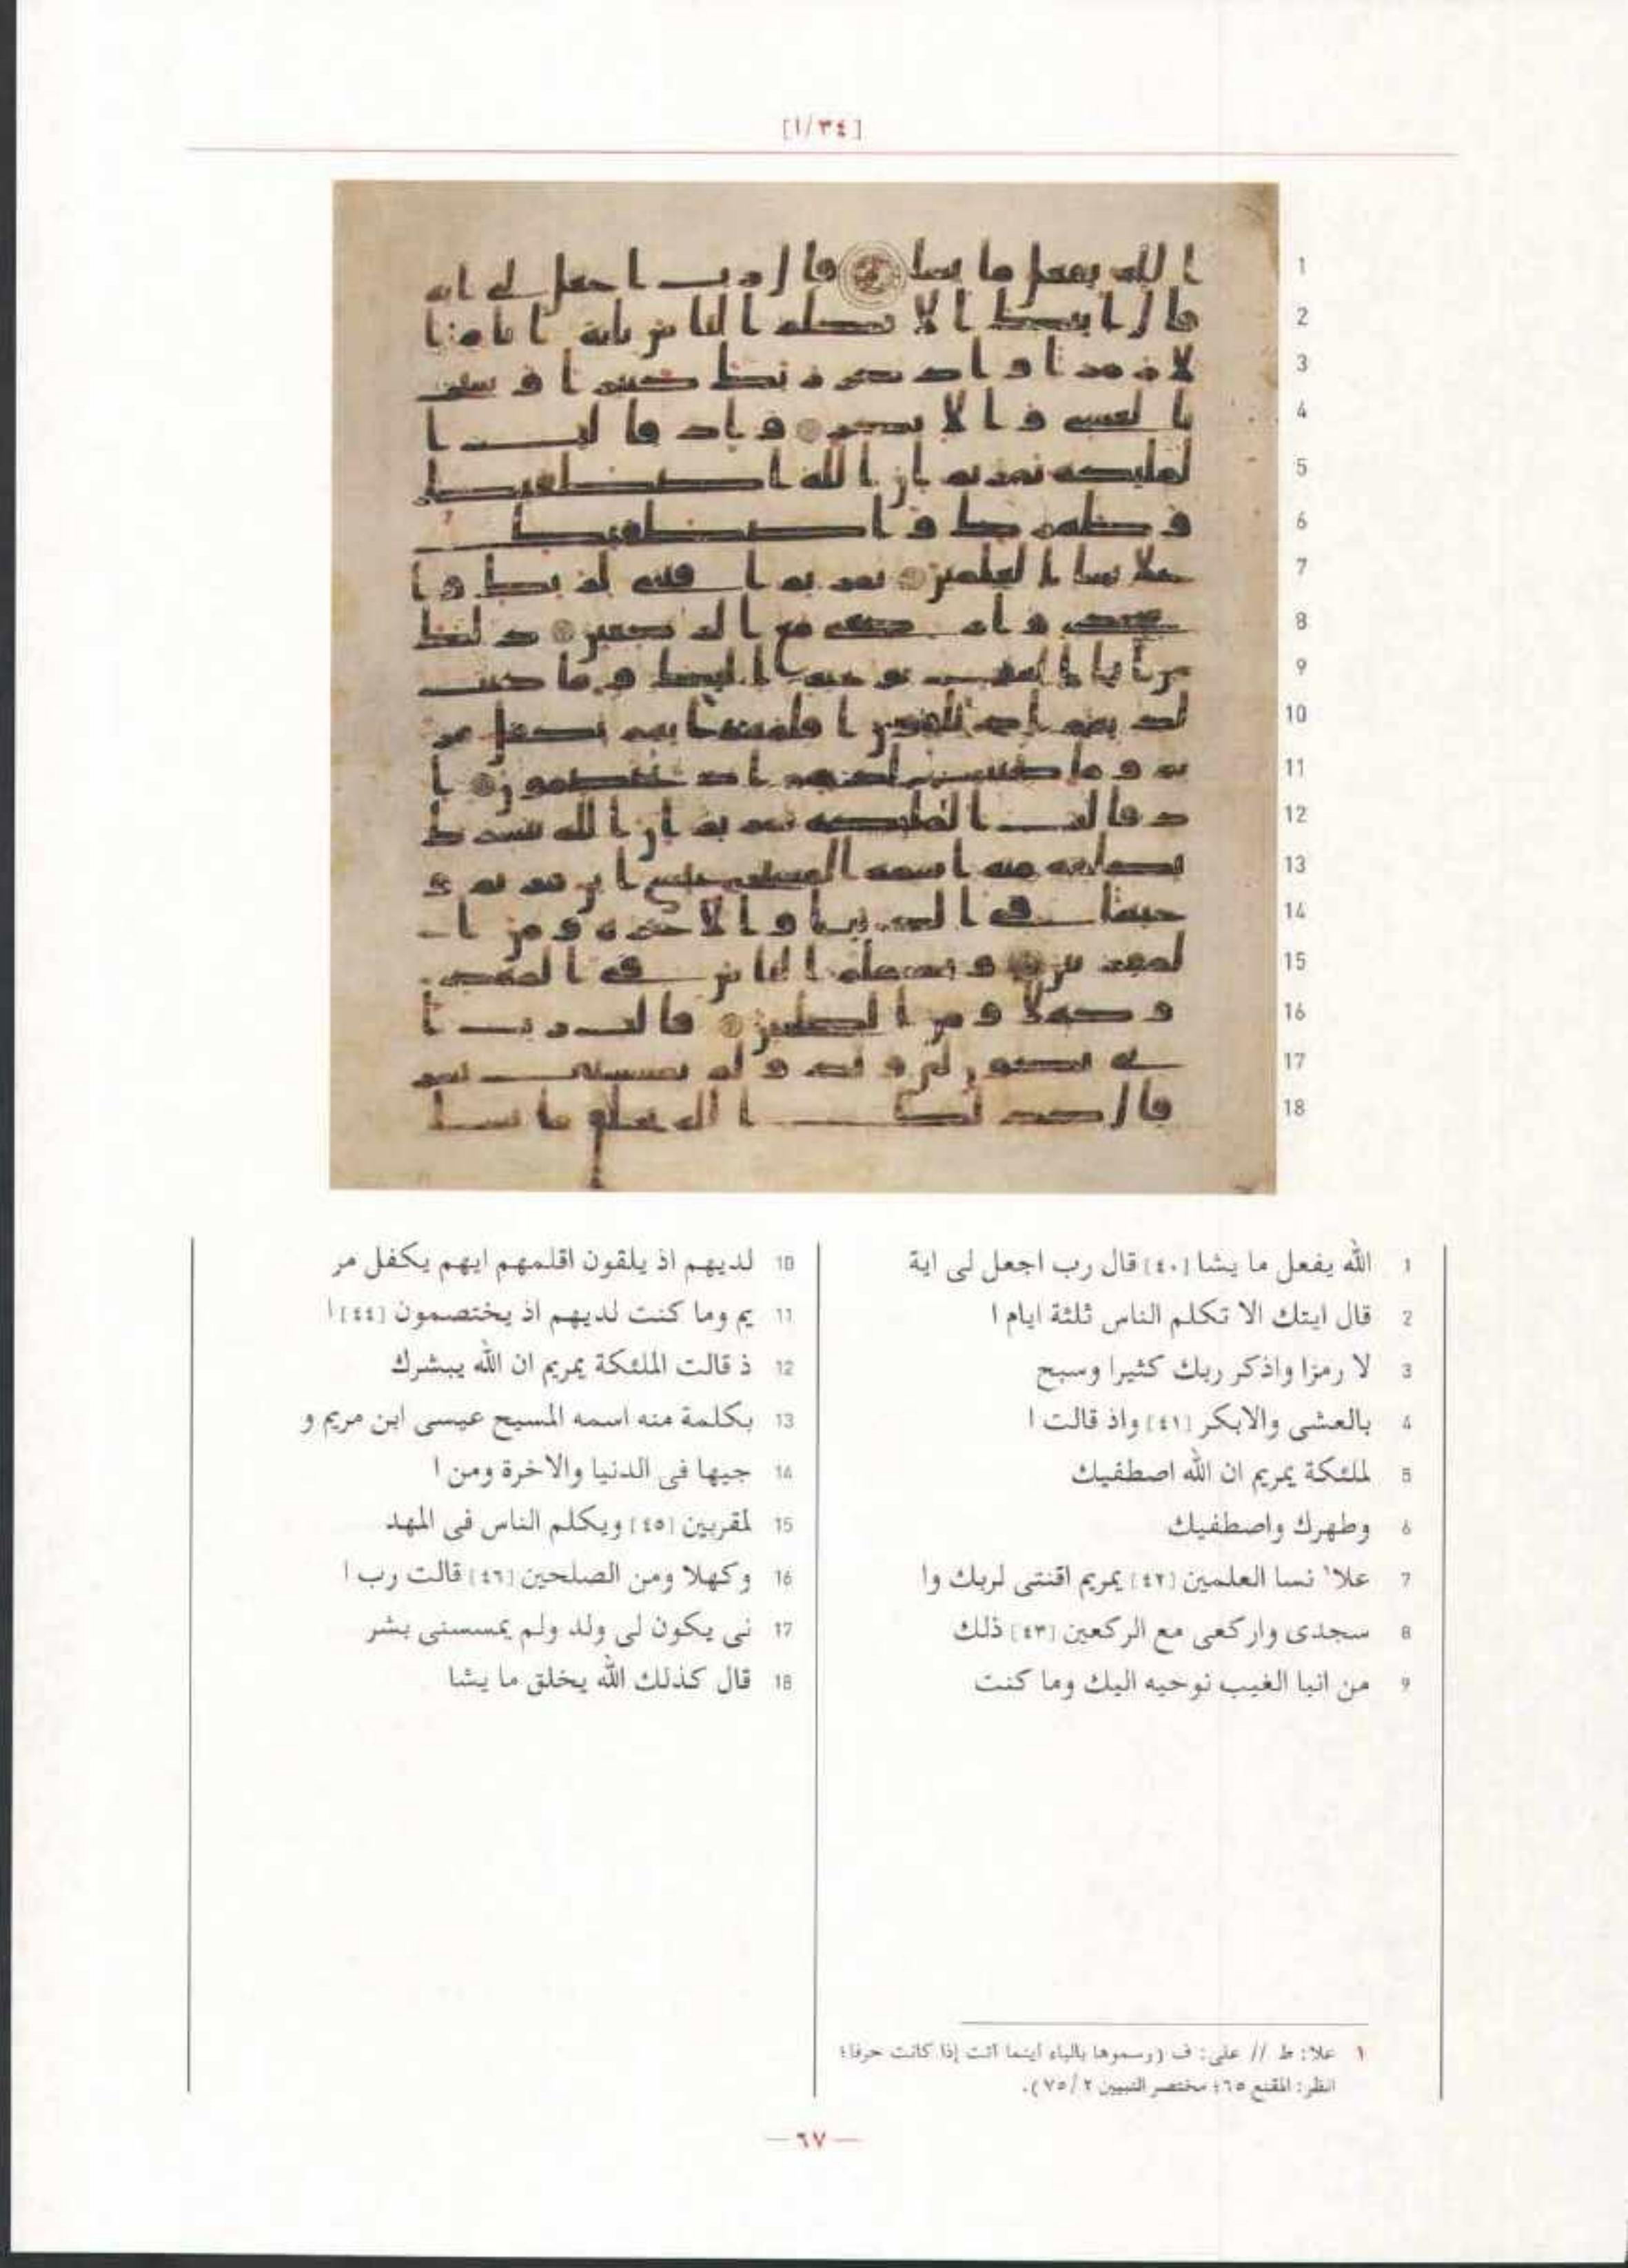 [١/٣٤]
1
2
3
4
5
6
7
8
9
10
11
12
13
14
15
16
17
18
1 الله يفعل ما يشا [٤٠] قال رب اجعل لى اية
2 قال ايتك الا تكلم الناس ثلثة ايام ا
3 لا رمزا واذكر ربك كثيرا وسبح
4 بالعشى والابكر [٤١] واذ قالت ا
5 لملئكة يمريم ان الله اصطفيك
6 وطهرك واصطفيك
7 علا١ نسا العلمين [٤٢] يمريم اقنتى لربك وا
8 سجدى واركعى مع الركعين [٤٣] ذلك
9 من انبا الغيب نوحيه اليك وما كنت
10 لديهم اذ يلقون اقلمهم ايهم يكفل مر
11 يم وما كنت لديهم اذ يختصمون [٤٤] ا
12 ذ قالت الملئكة يمريم ان الله يبشرك
13 بكلمة منه اسمه المسيح عيسى ابن مريم و
14 جيها فى الدنيا والاخرة ومن ا
15 لمقربين [٤٥] ويكلم الناس فى المهد
16 وكهلا ومن الصلحين [٤٦] قالت رب ا
17 نى يكون لى ولد ولم يمسسنى بشر
18 قال كذلك الله يخلق ما يشا
١ علا: ط // على: ف (رسموها بالياء أينما أتت إذا كانت حرفا؛
انظر: المقنع ٦٥؛ مختصر التبيين ٧٥/٢).
— ٦٧ —